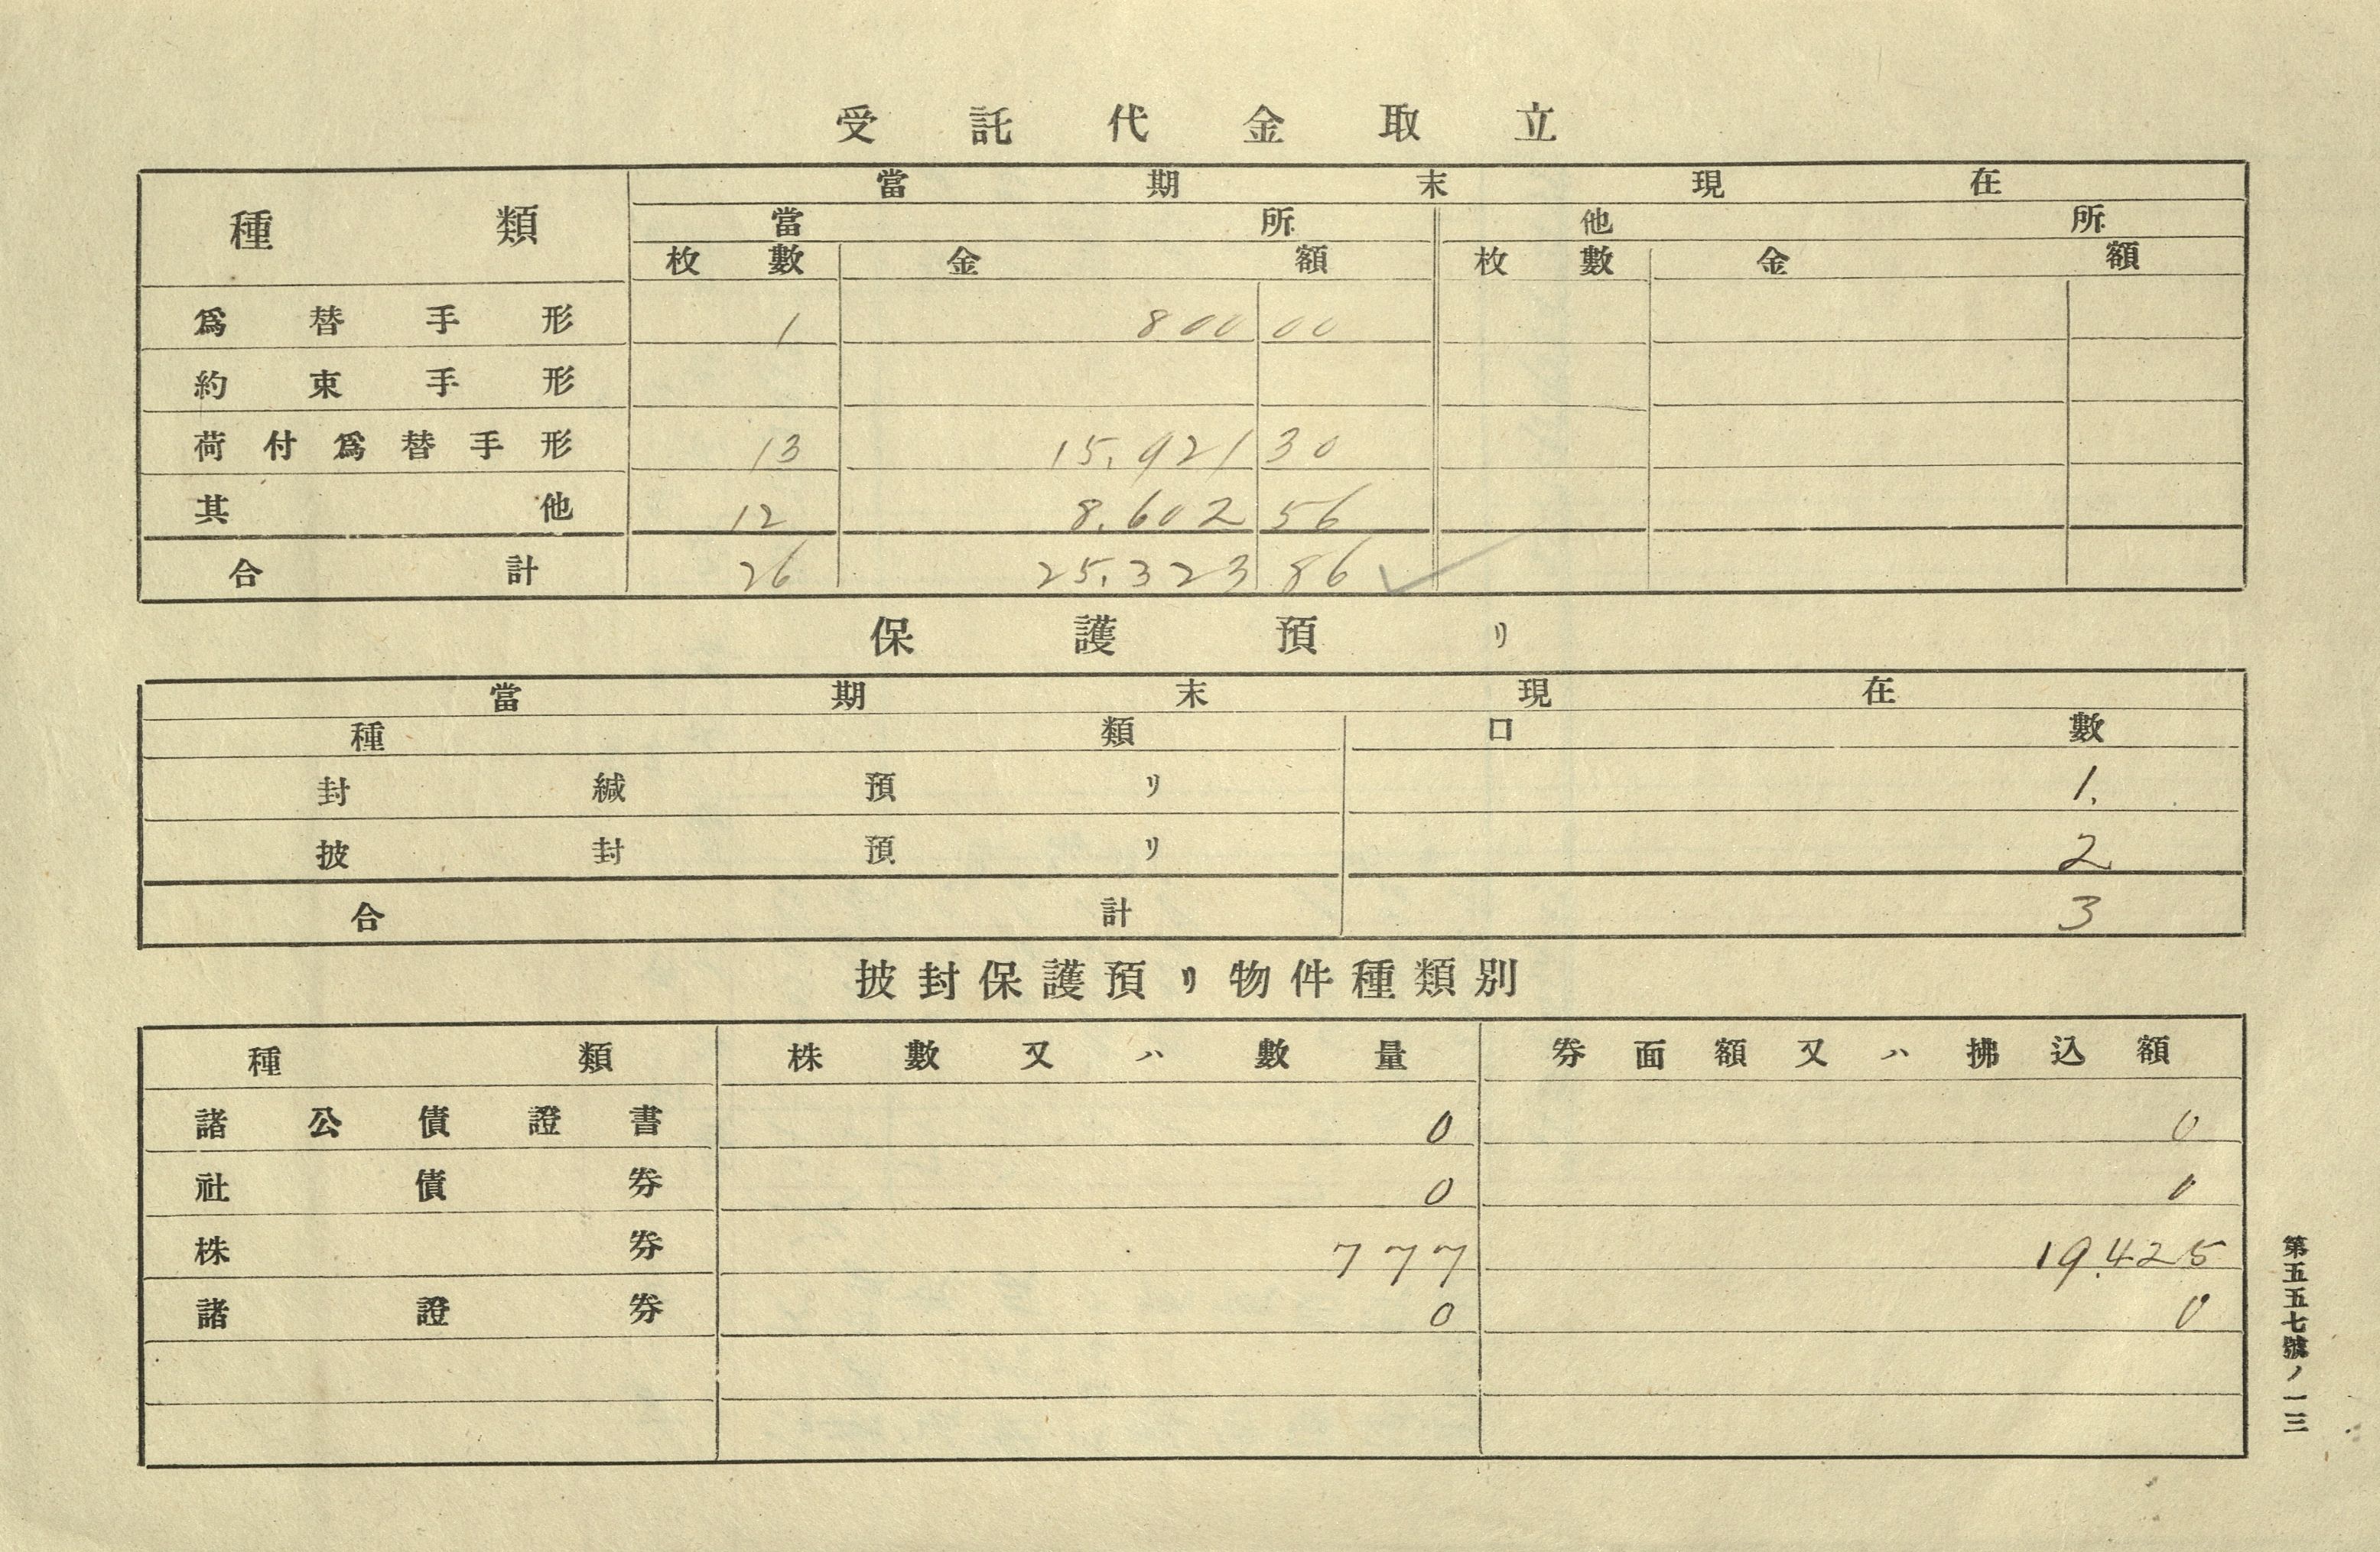 受託代金取立
種類 當期末現在
當所 他所
枚數 金額 枚數 金額
爲替手形 1 800 00
約束手形
荷付爲替手形 13 15,921 30
其他 12 8,602 56
合計 26 25,323 86 ✓
保護預リ
當期末現在
種類 口數
封緘預リ 1.
披封預リ 2
合計 3
披封保護預リ物件種類別
種類 株數又ハ數量 券面額又ハ拂込額
諸公債證書 0 0
社債券 0 0
株券 777 19,425
諸證券 0 0
第五五七號ノ一三